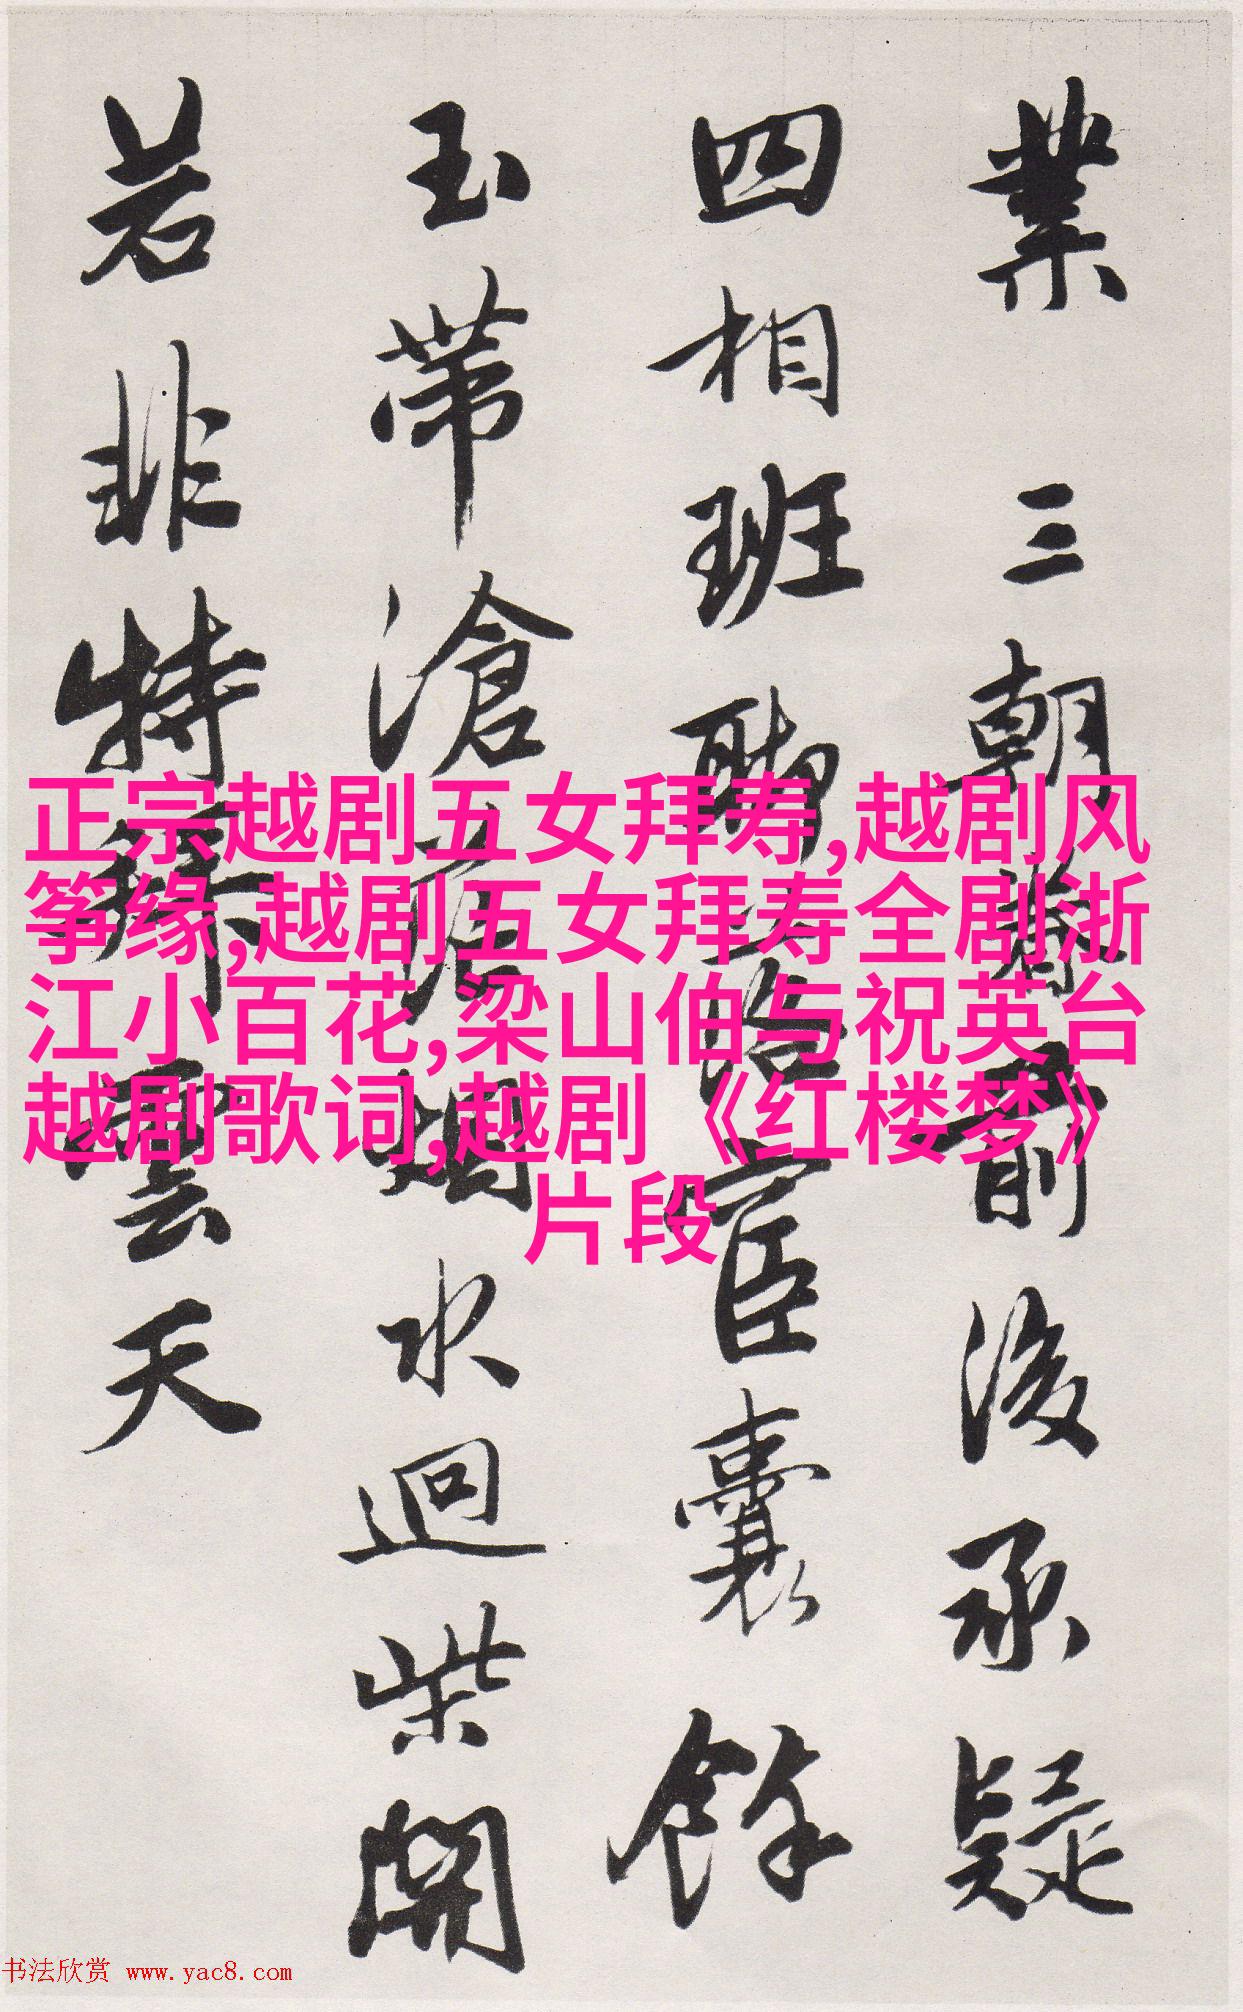 業 三朝眷前後承疑
四相班聯路宦囊餘
玉帶滄烟水迴柴關
若非特拜雲天
正宗越剧五女拜寿,越剧风
筝缘,越剧五女拜寿全剧浙
江小百花,梁山伯与祝英台
越剧歌词,越剧《红楼梦》
片段
书法欣赏 www.yac8.com